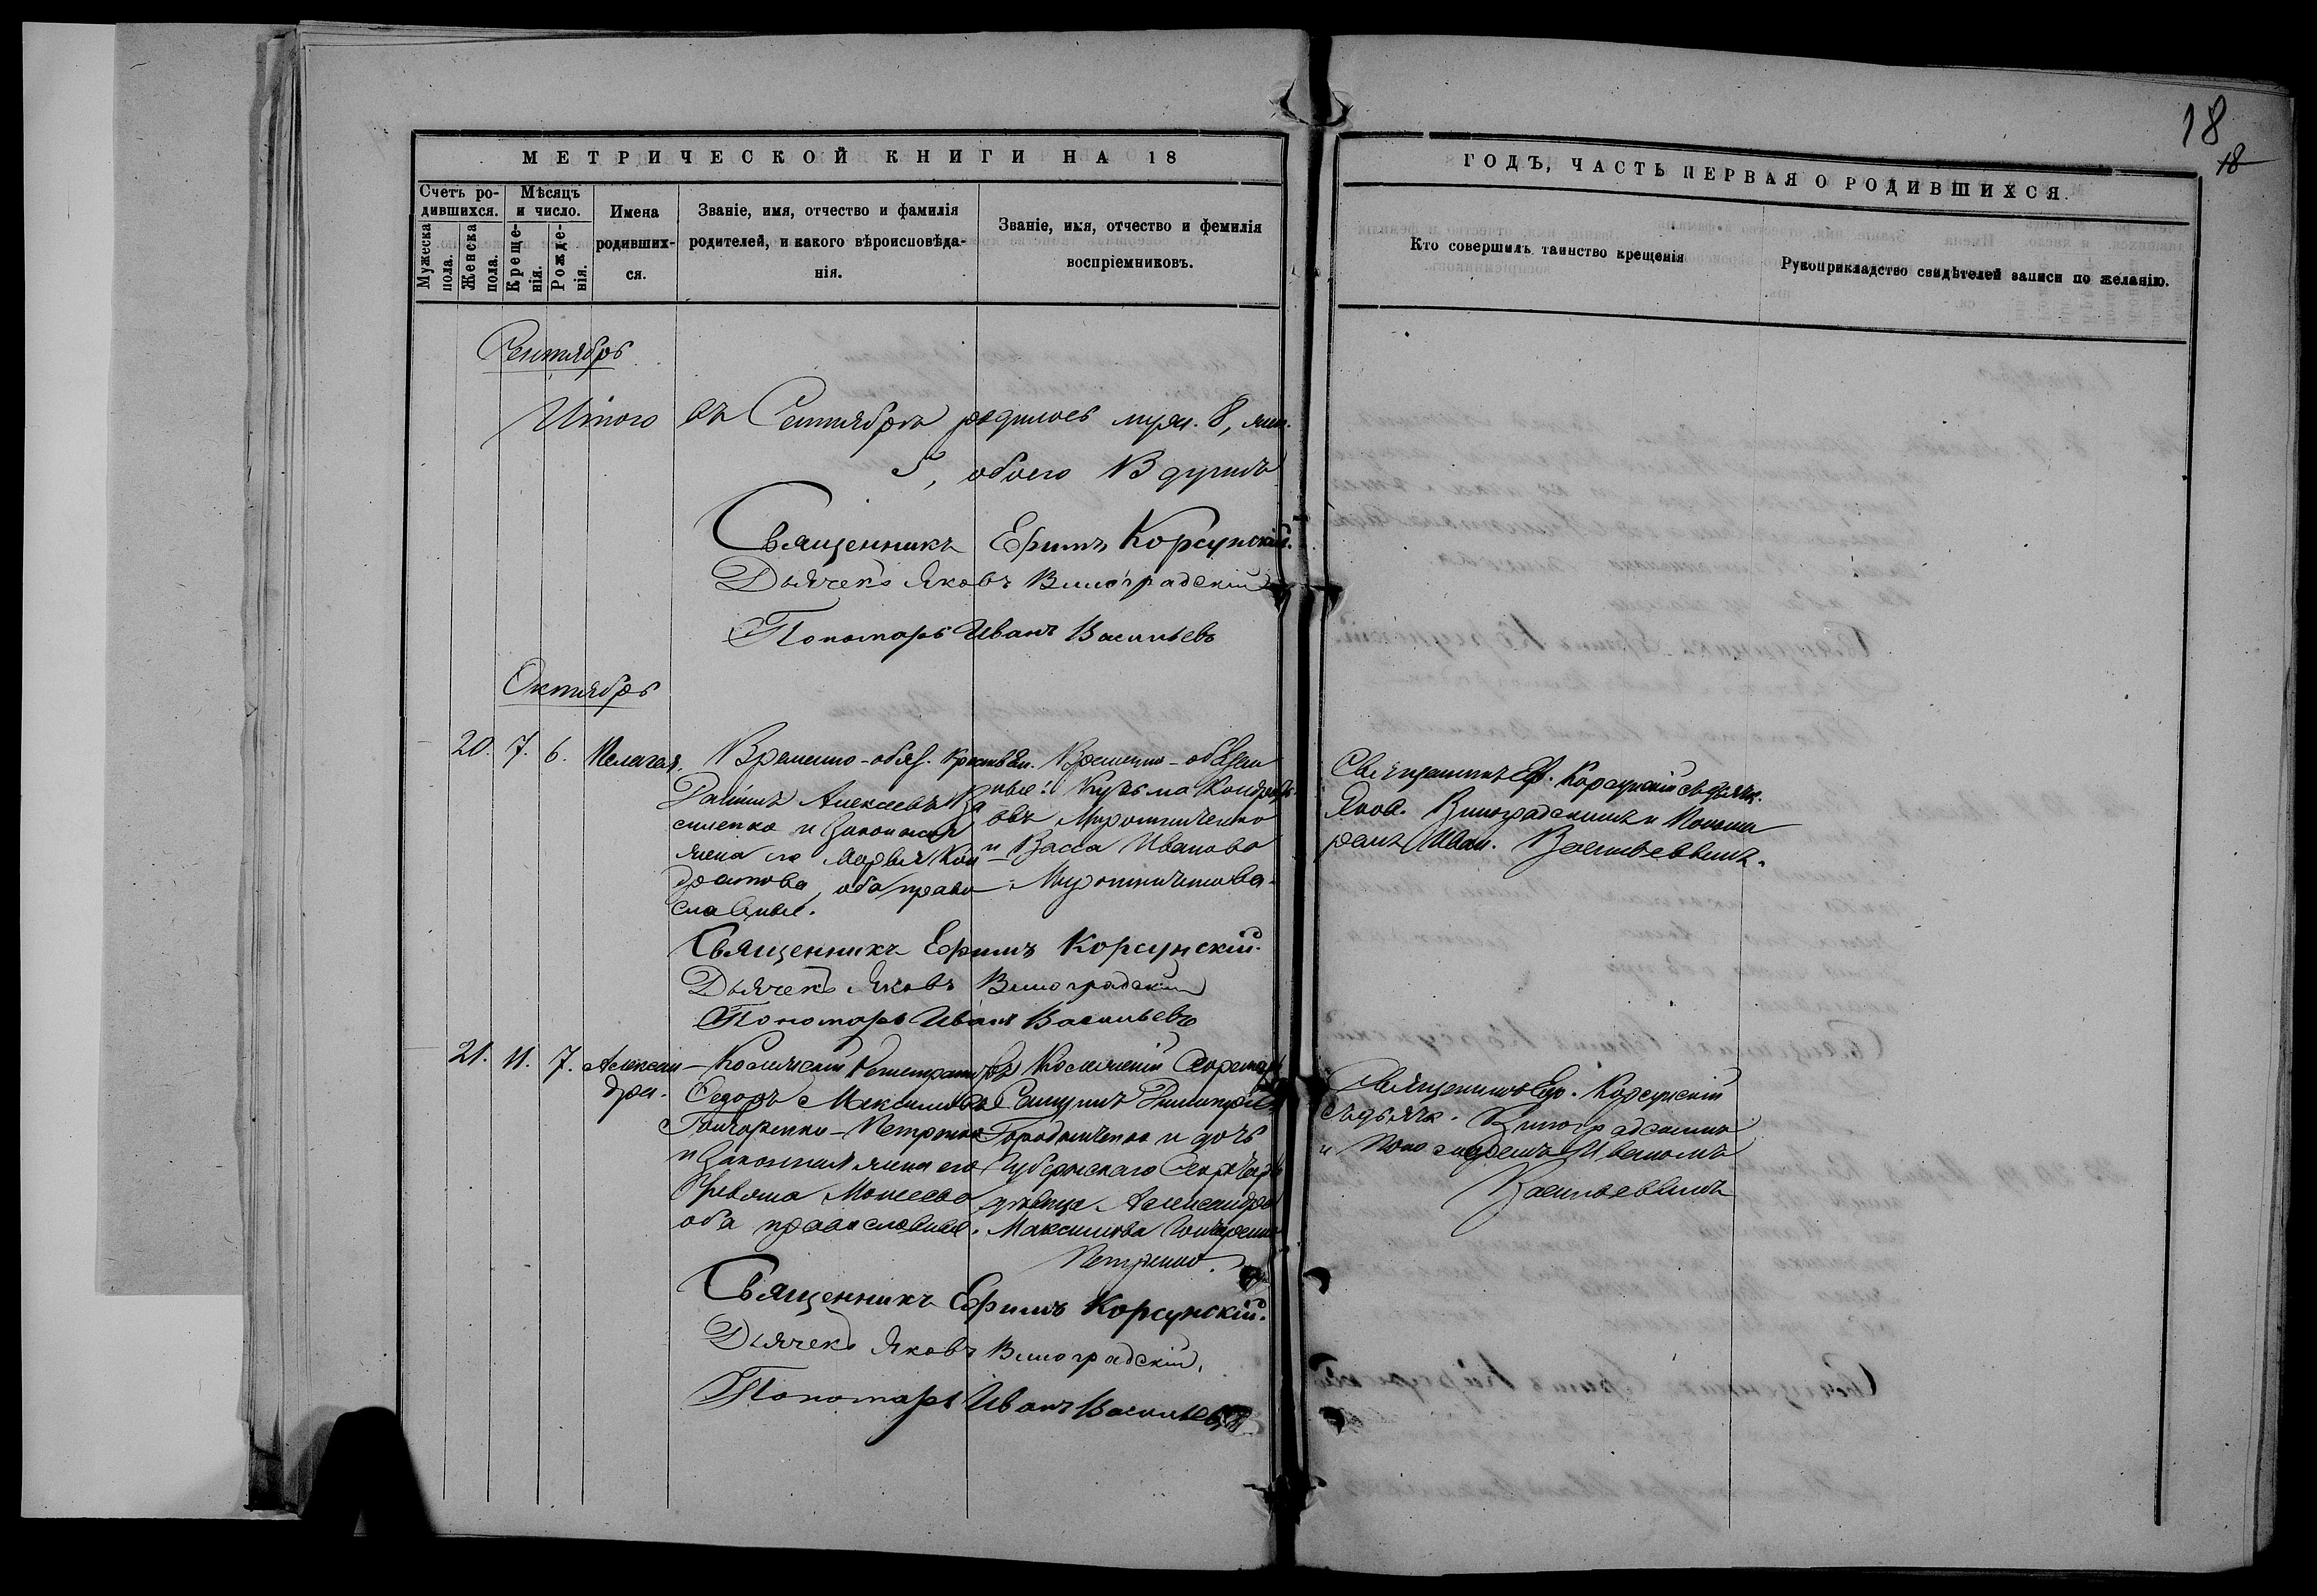 18
18
МЕТРИЧЕСКОЙ КНИГИ НА 18
ГОДЪ, ЧАСТЬ ПЕРВАЯ О РОДИВШИХСЯ.
Счетъ ро-
дившихся.
Мужеска
пола.
Женска
пола.
Мѣсяцъ
и число.
Креще-
нія.
Рожде-
нія.
Имена
родивших-
ся.
Званіе, имя, отчество и фамилія
родителей, и какого вѣроисповѣда-
нія.
Званіе, имя, отчество и фемилія
воспріемниковъ.
Кто совершилъ таинство крещенія
Рукоприкладство свидѣтелей записи по желанію.
Сентябрь
Итого въ Сентябрѣ родилось муж. 8, жен.
5, обоего 13 душъ
Священникъ Ефимъ Корсунскій.
Дьячекъ Яковъ Виноградскій
Пономарь Иванъ Васильевъ
Октябрь
20. 7. 6. Пелагея.
Временно-обяз. крестьян.
Алексѣевъ
сленко и законная
жена его Марья Кон
дратова, оба право
славные.
Временно-обязан
ные: Кузьма Кондрать
евъ Мирошниченко
и Васса Иванова
Мирошниченкова.
Священникъ Еф. Корсунскій съ дьячк.
Яков. Виноградскимъ и Понома
ремъ Иван. Васильевымъ.
Священникъ Ефимъ Корсунскій.
Дьячекъ Яковъ Виноградскій
Пономарь Иванъ Васильевъ
21. 11. 7. Алексан
дра.
Коллежскій Регистраторъ
Федоръ Максимовъ
Гончаренко-Петренко
и законная жена его
Моисеева
оба православные.
Коллежскій Секретарь
Городниченко и дочь
Губернскаго Секретаря
дѣвица Александра
Максимова Гончаренко
Петренко.
Священникъ Еф. Корсунскій
съ дьячк. Виноградскимъ
и Пономаремъ Иваномъ
Васильевымъ
Священникъ Ефимъ Корсунскій.
Дьячекъ Яковъ Виноградскій,
Пономарь Иванъ Васильевъ